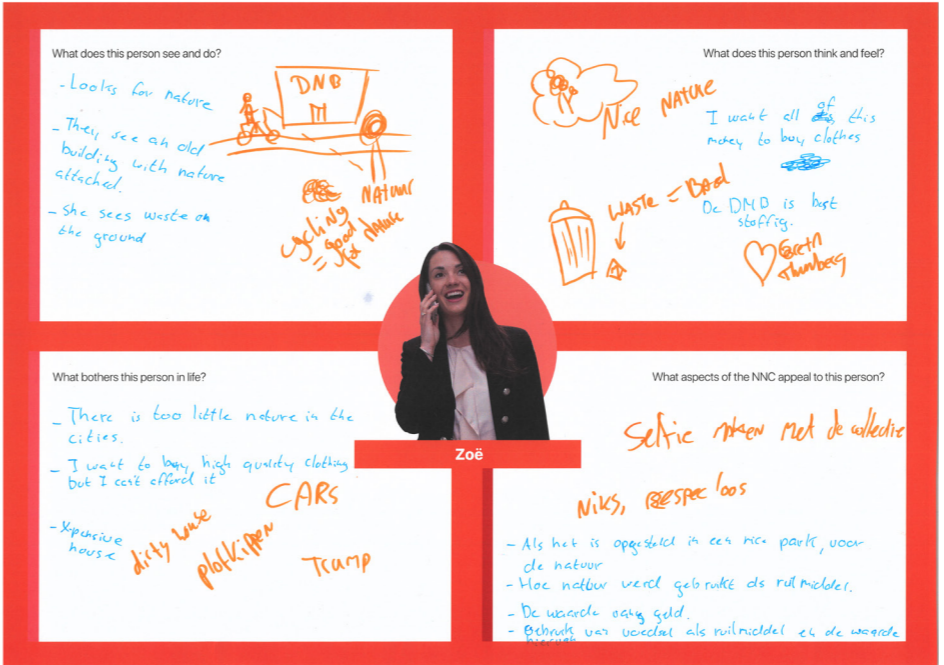 What does this person see and do?
- Looks for nature
- They see an old
building with nature
attached.
- She sees waste on
the ground
DNB
NATUUR
cycling
= good
for nature
What does this person think and feel?
Nice NATURE
I want all of this
money to buy clothes
WASTE = BAD
De DMB is best
stoffig.
Greth
Thunberg
What bothers this person in life?
- There is too little nature in the
cities.
- I want to buy high quality clothing
but I can't afford it
- Xpensive
house
CARS
dirty house
plofkippen
Trump
Zoë
What aspects of the NNC appeal to this person?
Selfie maken met de collectie
Niks, loos
- Als het is opgesteld in een nice park, voor
de natuur
- Hoe natuur werd gebruikt als ruilmiddel.
- De waarde geld.
- Gebruik van voedsel als ruilmiddel en de waarde
hiervan